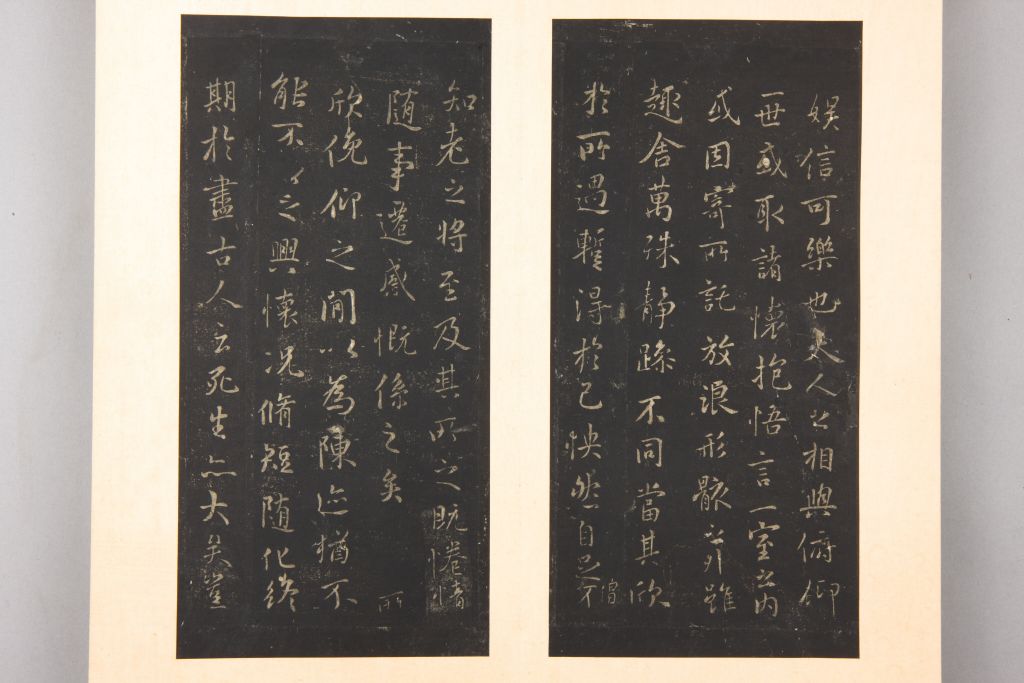 娛信可樂也夫人之相與俯仰
一世或取諸懷抱悟言一室之內
或因寄所託放浪形骸之外雖
趣舍萬殊靜躁不同當其欣
僧
於所遇暫得於己怏然自足不
知老之將至及其所之既惓情
隨事遷感慨係之矣 所
欣俛仰之間以為陳迹猶不
能不以之興懷況脩短隨化終
期於盡古人云死生亦大矣豈